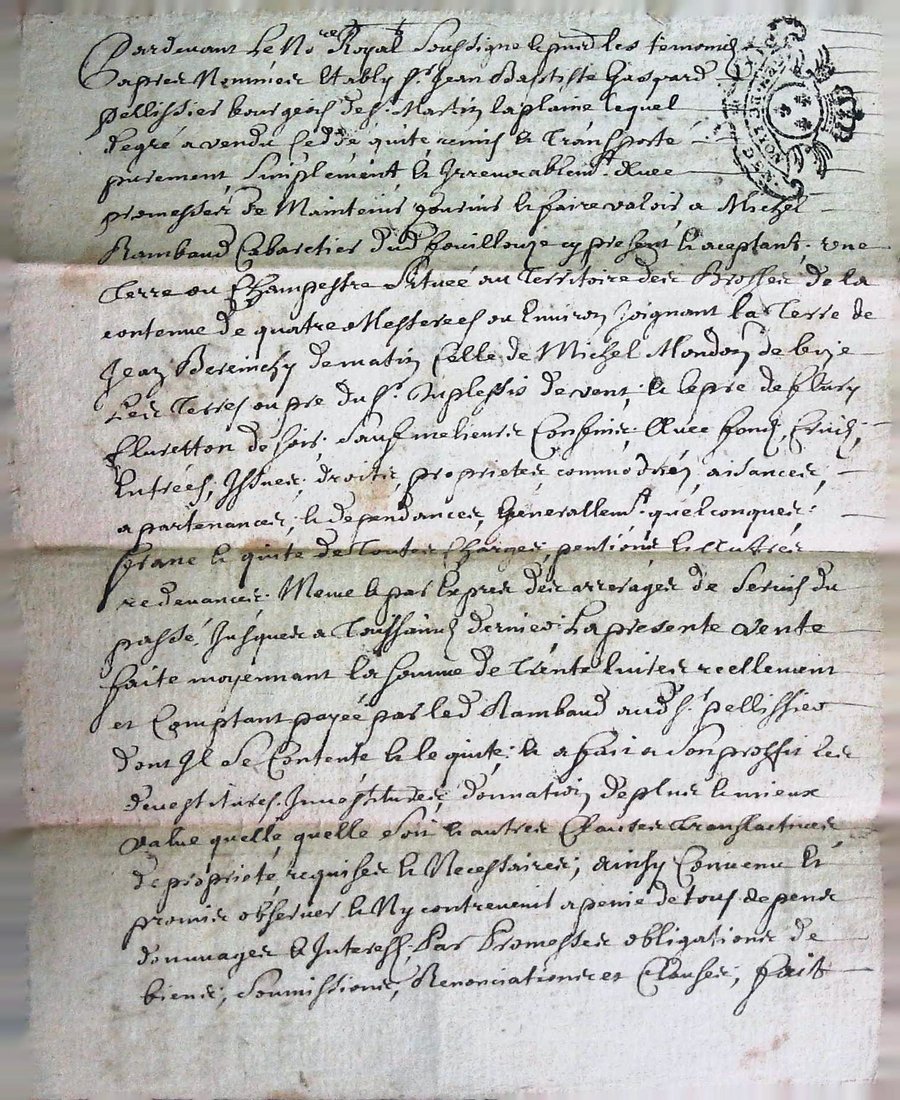 Pardevant Le No.re Royal Soussigne le pnt les temoins
apres Nommes Etably Sr. Jean Baptiste Gaspard
pellissier bourgeois de St. Martin laplaine lequel
degré a vendu Cedde quité remis & Transporté
purement Simplement & Irrevocablemt. Avec
promesses de Maintenir Jouir & faire valoir a Michel
Rambaud Cabaretier dud fouillouze cy present & aceptant, une
Terre ou Champestre Situeé au Territoire des Brosses de la
contenue de quatre Mestereés ou Environ Joignant la Terre de
Jean de matin Celle de Michel Mondon de bize
Les Terres ou pre du Sr. Duplessis de vent, & le pre de flury
fluretton de soir, sauf melieurs Confins, Avec fond,
Entreés, Issues, droits, proprietes, commodités, aisances,
apartenances, & dependances, Generallemt. quelconques,
franc & quite de Toutes Charges, pentions & autres
redevances. Meme & par Expres des arrerages de Servis du
passé, Jusques a Toussaints dernier. La presente vente
faite moyennant la somme de Trente Livres reellement
et Comptant payeé par led Rambaud aud Sr. pellissier
dont Il Se Contente & le quite, & a fait a Son proffit Les
devestitures, Investitures, donnation de plus & mieux
value quelle, quelle soit & autres Clauses Translatives
de proprieté requises & Necessaires, Ainsy Convenu Et
promis observer & Ny contrevenir a peine de tous depens
dommages & Interests, Par Promesses obligations de
biens, Soumissions, Renonciations et Clauses, fait